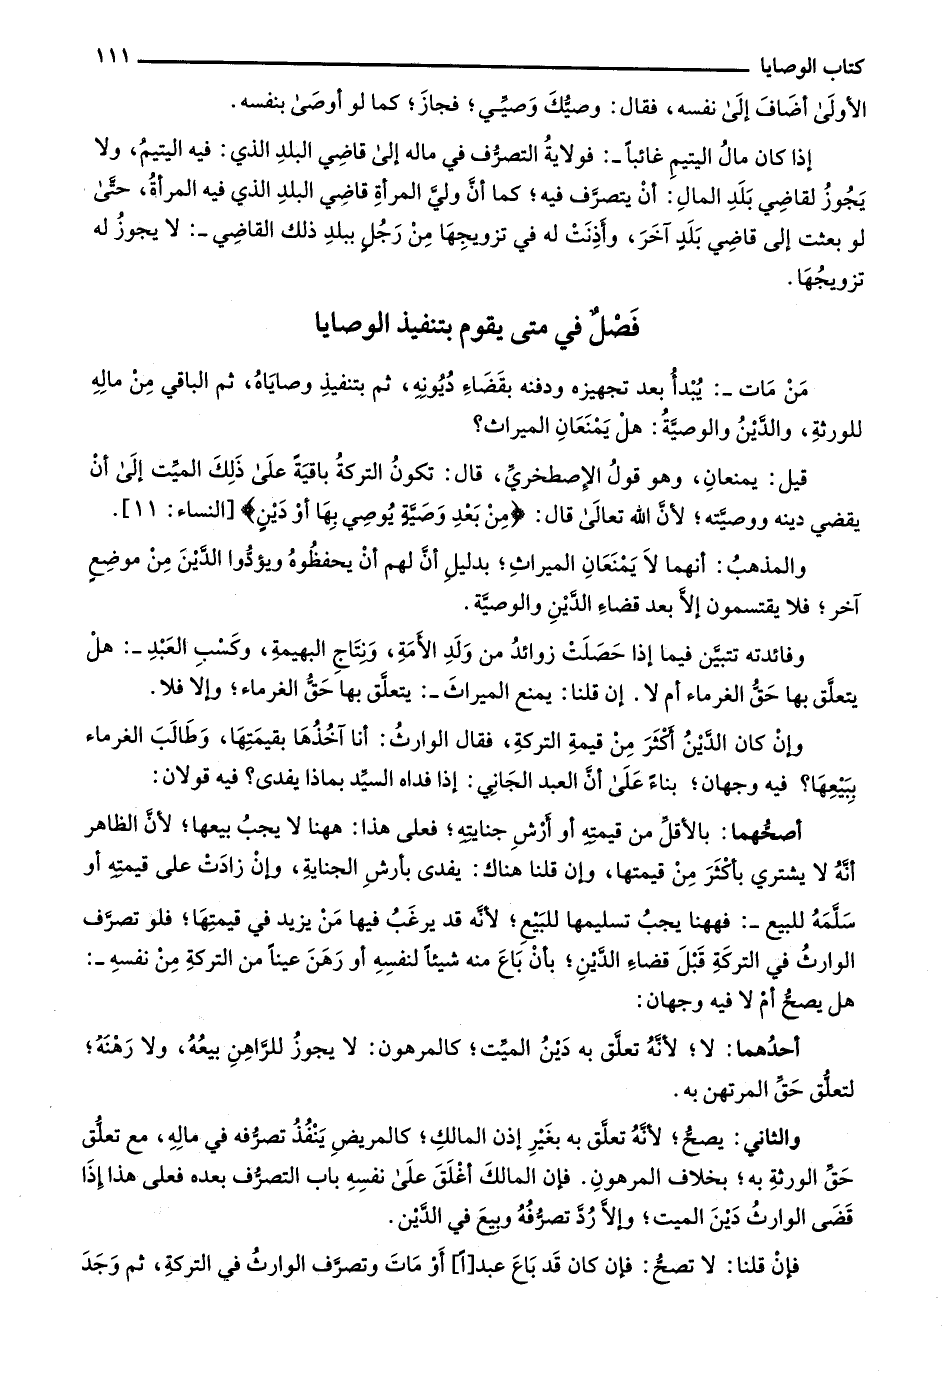 كتاب الوصايا ١١١
الأولَىٰ أضَافَ إلَىٰ نفسه، فقال: وصيُّكَ وَصيِّي؛ فجازَ؛ كما لو أوصَىٰ بنفسه.
إذا كان مالُ اليتيمِ غائباً ـ: فولايةُ التصرُّف في ماله إلىٰ قاضِي البلدِ الذي: فيه اليتيمُ، ولا
يَجُوزُ لقاضِي بَلَدِ المالِ: أنْ يتصرَّف فيه؛ كما أنَّ وليَّ المرأةِ قاضِي البلد الذي فيه المرأةُ، حتَّىٰ
لو بعثت إلى قاضِي بَلَدٍ آخَرَ، وأَذِنَتْ له في تزويجِهَا مِنْ رَجُلٍ ببلدِ ذلك القاضِي ـ: لا يجوزُ له
تزويجُهَا.
فَصْلٌ في متى يقوم بتنفيذ الوصايا
مَنْ مَات ـ: يُبْدأُ بعد تجهيزه ودفنه بقَضَاءِ دُيُونِهِ، ثم بتنفيذِ وصايَاهُ، ثم الباقي مِنْ مالِهِ
للورثةِ، والدَّيْنُ والوصيَّةُ: هلْ يَمْنَعَانِ الميراث؟
قيل: يمنعانِ، وهو قولُ الإصطخريِّ، قال: تكونُ التركةُ باقيَةً علَىٰ ذَلِكَ الميِّت إلَىٰ أنْ
يقضي دينه ووصيَّته؛ لأنَّ الله تعالَىٰ قال: ﴿مِنْ بَعْدِ وَصَيَّةٍ يُوصِي بِهَا أوْ دَيْنٍ﴾ [النساء: ١١].
والمذهبُ: أنهما لاَ يَمْنَعَانِ الميراثِ؛ بدليلِ أنَّ لهم أنْ يحفظُوهُ ويؤدُّوا الدَّيْنَ مِنْ موضعٍ
آخر؛ فلا يقتسمون إلاَّ بعد قضاءِ الدَّيْنِ والوصيَّة.
وفائدته تتبيَّن فيما إذا حَصَلَتْ زوائدُ من وَلَدِ الأَمَةِ، وَنِتَاجِ البهيمةِ، وكَسْبِ العَبْدِ ـ: هلْ
يتعلَّق بها حَقُّ الغرماء أم لا. إن قلنا: يمنع الميراثَ ـ: يتعلَّق بها حَقُّ الغرماء؛ وإلا فلا.
وإنْ كان الدَّيْنُ أكْثَرَ مِنْ قيمةِ التركةِ، فقال الوارثُ: أنا آخُذُهَا بقيمَتِهَا، وَطَالَبَ الغرماء
بِبَيْعِهَا؟ فيه وجهان؛ بناءً عَلَىٰ أنَّ العبد الجَانِي: إذا فداه السيِّد بماذا يفدى؟ فيه قولان:
أصحُّهما: بالأقلِّ من قيمتِهِ أو أَرْشِ جنايتِهِ؛ فعلى هذا: ههنا لا يجبُ بيعها؛ لأنَّ الظاهر
أنَّهُ لا يشتري بأكْثَرَ مِنْ قيمتها، وإن قلنا هناك: يفدى بأرشِ الجنايةِ، وإنْ زادَتْ على قيمتِهِ أو
سَلَّمَهُ للبيع ـ: فههنا يجبُ تسليمها للبَيْعِ؛ لأنَّه قد يرغَبُ فيها مَنْ يزيد في قيمتِهَا؛ فلو تصرَّف
الوارثُ في التركَةِ قَبْلَ قضاءِ الدَّيْنِ؛ بأنْ بَاعَ منه شيئاً لنفسِهِ أو رَهَنَ عيناً من التركةِ مِنْ نفسِهِ ـ:
هل يصحُّ أمْ لا فيه وجهان:
أحدُهما: لا؛ لأنَّهُ تعلَّق به دَيْنُ الميِّت؛ كالمرهون: لا يجوزُ للرَّاهِنِ بيعُهُ، ولا رَهْنَهُ؛
لتعلُّق حَقِّ المرتهن به.
والثاني: يصحُّ؛ لأنَّهُ تعلَّق به بغَيْرِ إذن المالكِ؛ كالمريضِ يَنْفُذُ تصرُّفه في مالِهِ، مع تعلُّق
حَقِّ الورثةِ به؛ بخلاف المرهونِ. فإن المالكَ أغْلَقَ علَىٰ نفسِهِ باب التصرُّف بعده فعلى هذا إذَا
قَضَى الوارثُ دَيْنَ الميت؛ وإلاَّ رُدَّ تصرُّفُهُ وبِيعَ في الدَّيْن.
فإنْ قلنا: لا تصحُّ: فإن كان قَد بَاعَ عبد[اً] أَوْ مَاتَ وتصرَّف الوارثُ في التركةِ، ثم وَجَدَ